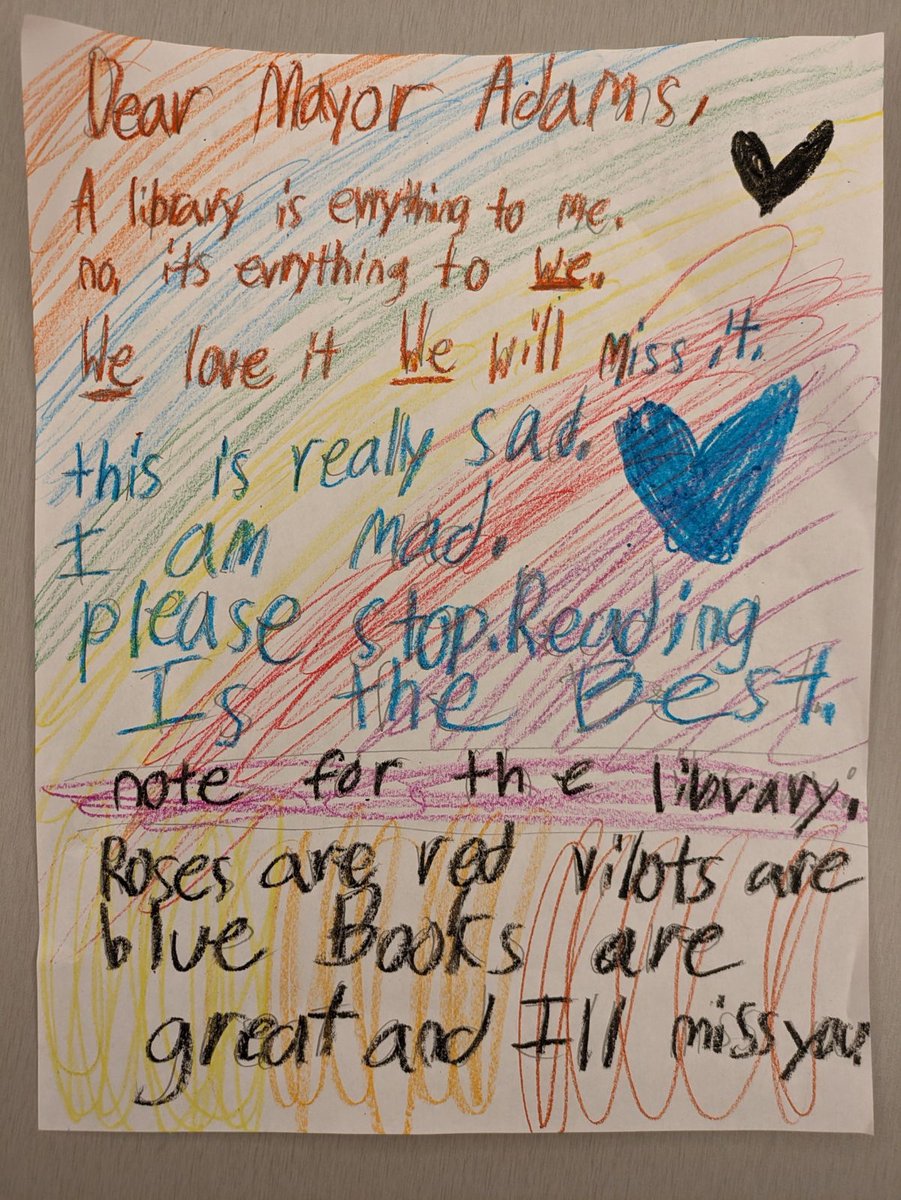 Dear Mayor Adams,
A library is evrything to me.
no, its evrything to we.
We love it We will miss it.
this is really sad.
I am mad.
please stop. Reading
Is the Best.
note for the library:
Roses are red vilots are
blue Books are
great and Ill miss you